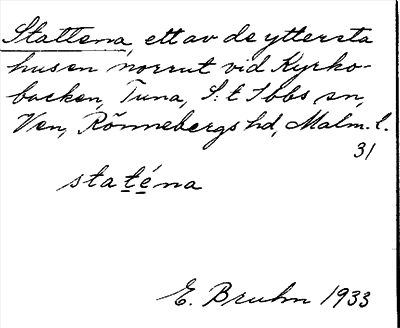 Stattena, ett av de yttersta
husen norrut vid Kyrko-
backen, Tuna, S:t Ibbs sn,
Ven, Rönnebergs hd, Malm. l.
31
staténa
E. Bruhn 1933